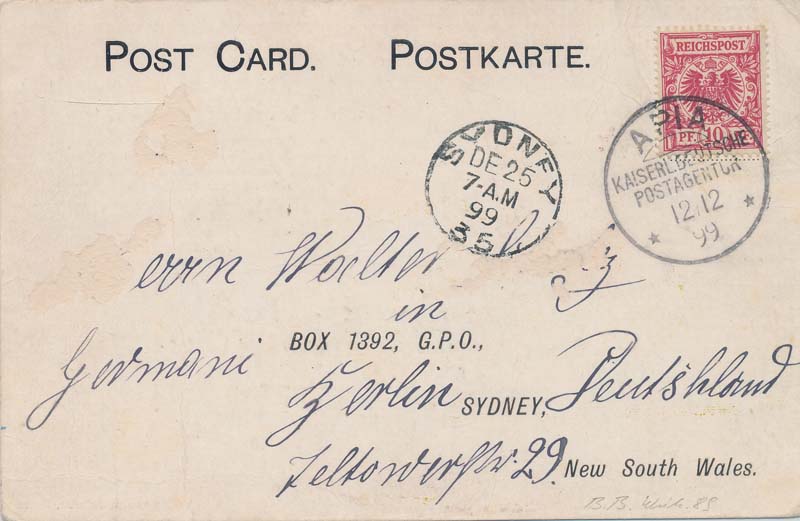 POST CARD. POSTKARTE.
REICHSPOST
PF. 10 PF.
APIA
KAISERL. DEUTSCHE
POSTAGENTUR
12.12
99
SYDNEY
DE 25
7-A.M
99
35
errn Walter
in
BOX 1392, G.P.O.,
Germani
Berlin SYDNEY, Deutshland
Teltowerstr. 29. NEW SOUTH WALES.
B.B.